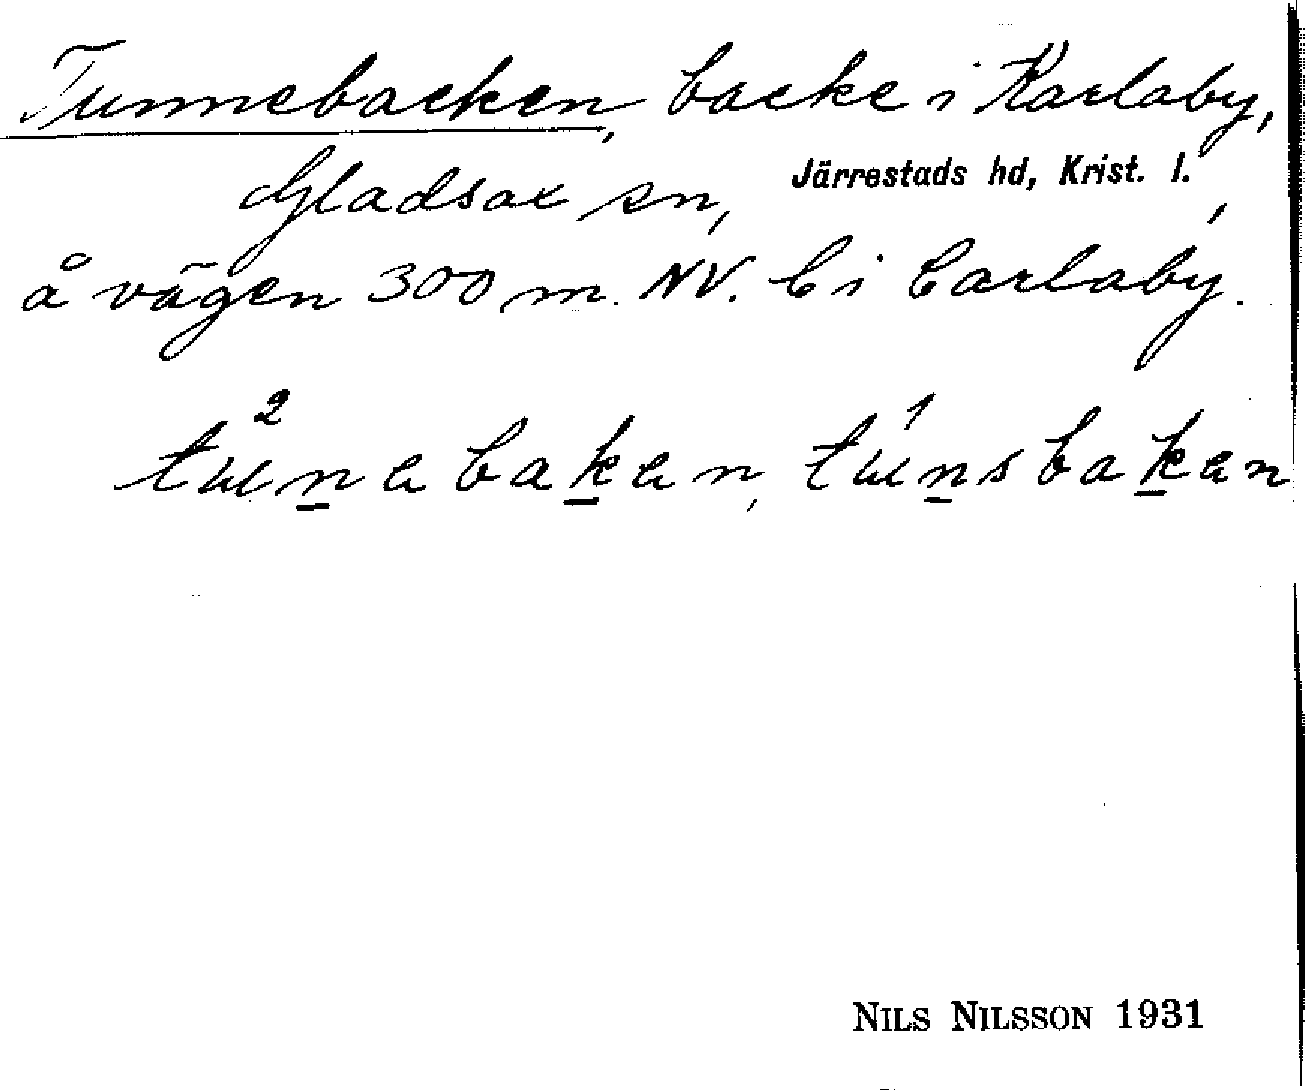 Tunnebacken, backe i Karlaby,
Gladsax sn, Järrestads hd, Krist. l.,
å vägen 300 m. NV. b i Carlaby.
2 1
tunabakan, tunsbakan
NILS NILSSON 1931